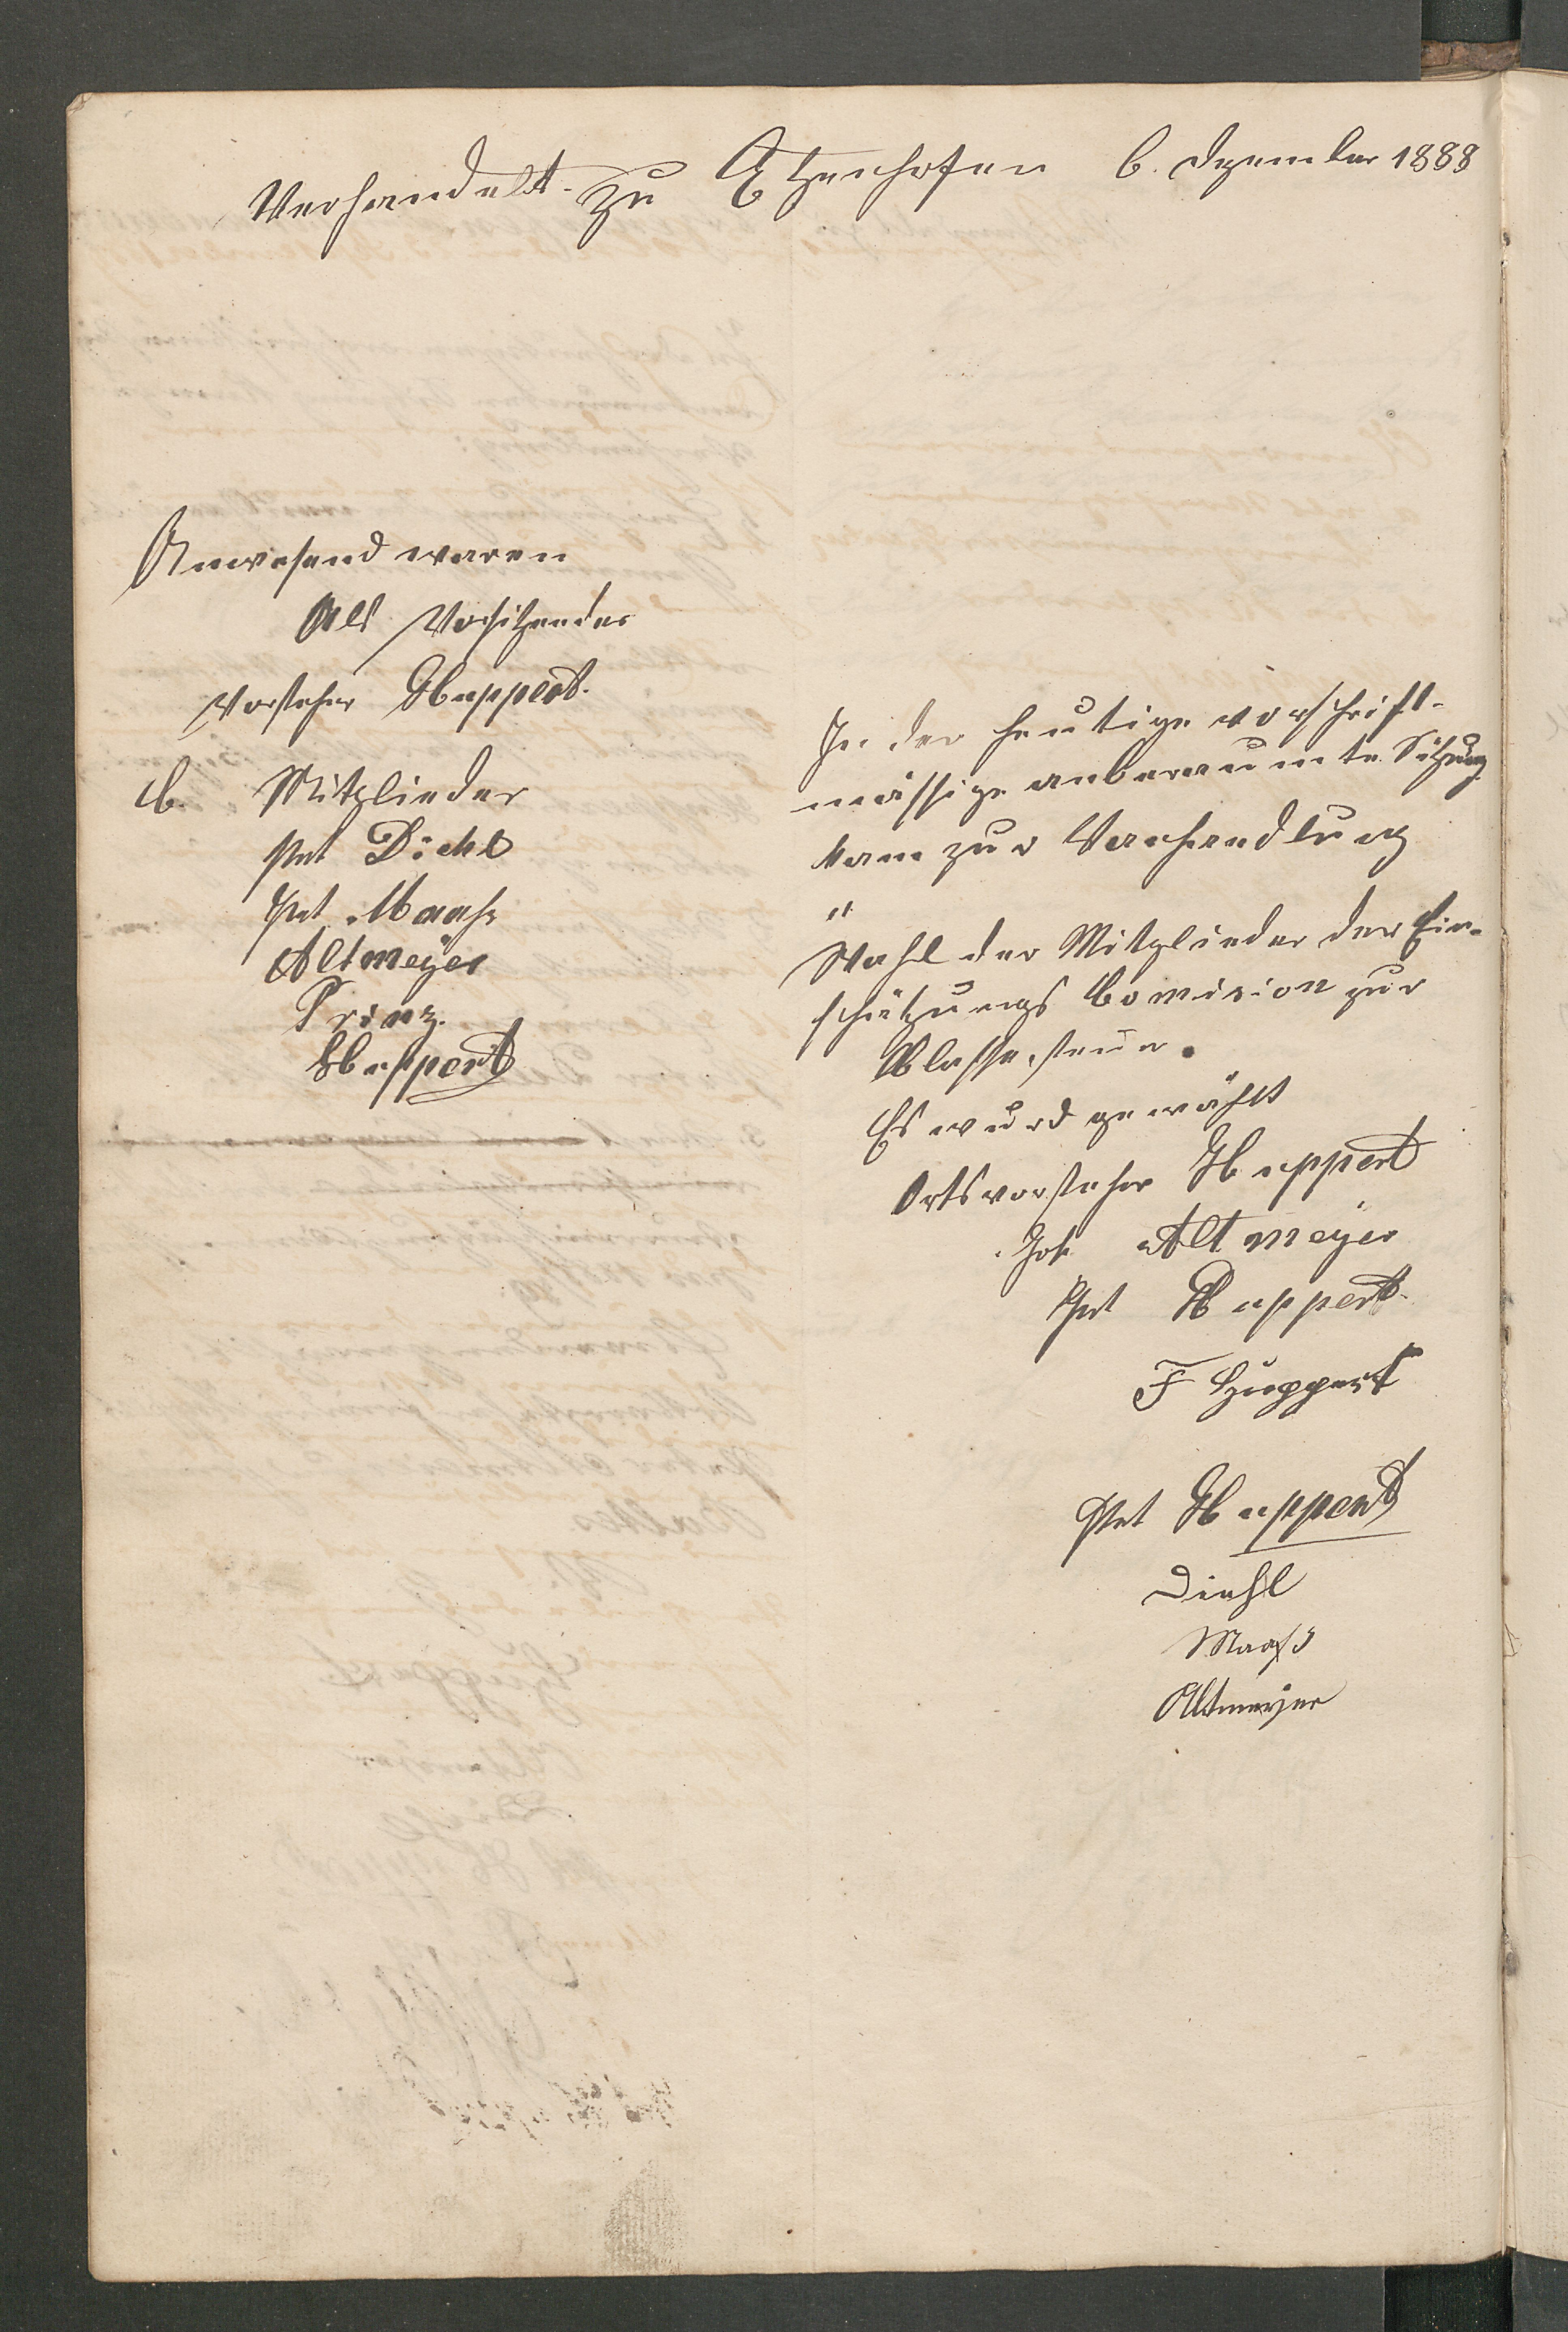 Verhandelt zu Etzenhofen 6. Dzember 1888
Anwesend waren
Als Vorsitzender
Vorsteher Huppert.
b. Mitglieder
Pet Diehl
Pet Maahs
Altmeyer
Prinz.
Huppert
In der heutige vorschrift-
mässige anberaumte Sitzung
kam zur Verhandlung
"
Wahl der Mitglieder der Ein-
schätzungs Comision zur
Klassesteur.
Es wurd gewählt
Ortsvorsteher Huppert
Joh Altmeyer
Pet Huppert
F Huppert
Pet Huppert
Diehl
Maahs
Altmeyer